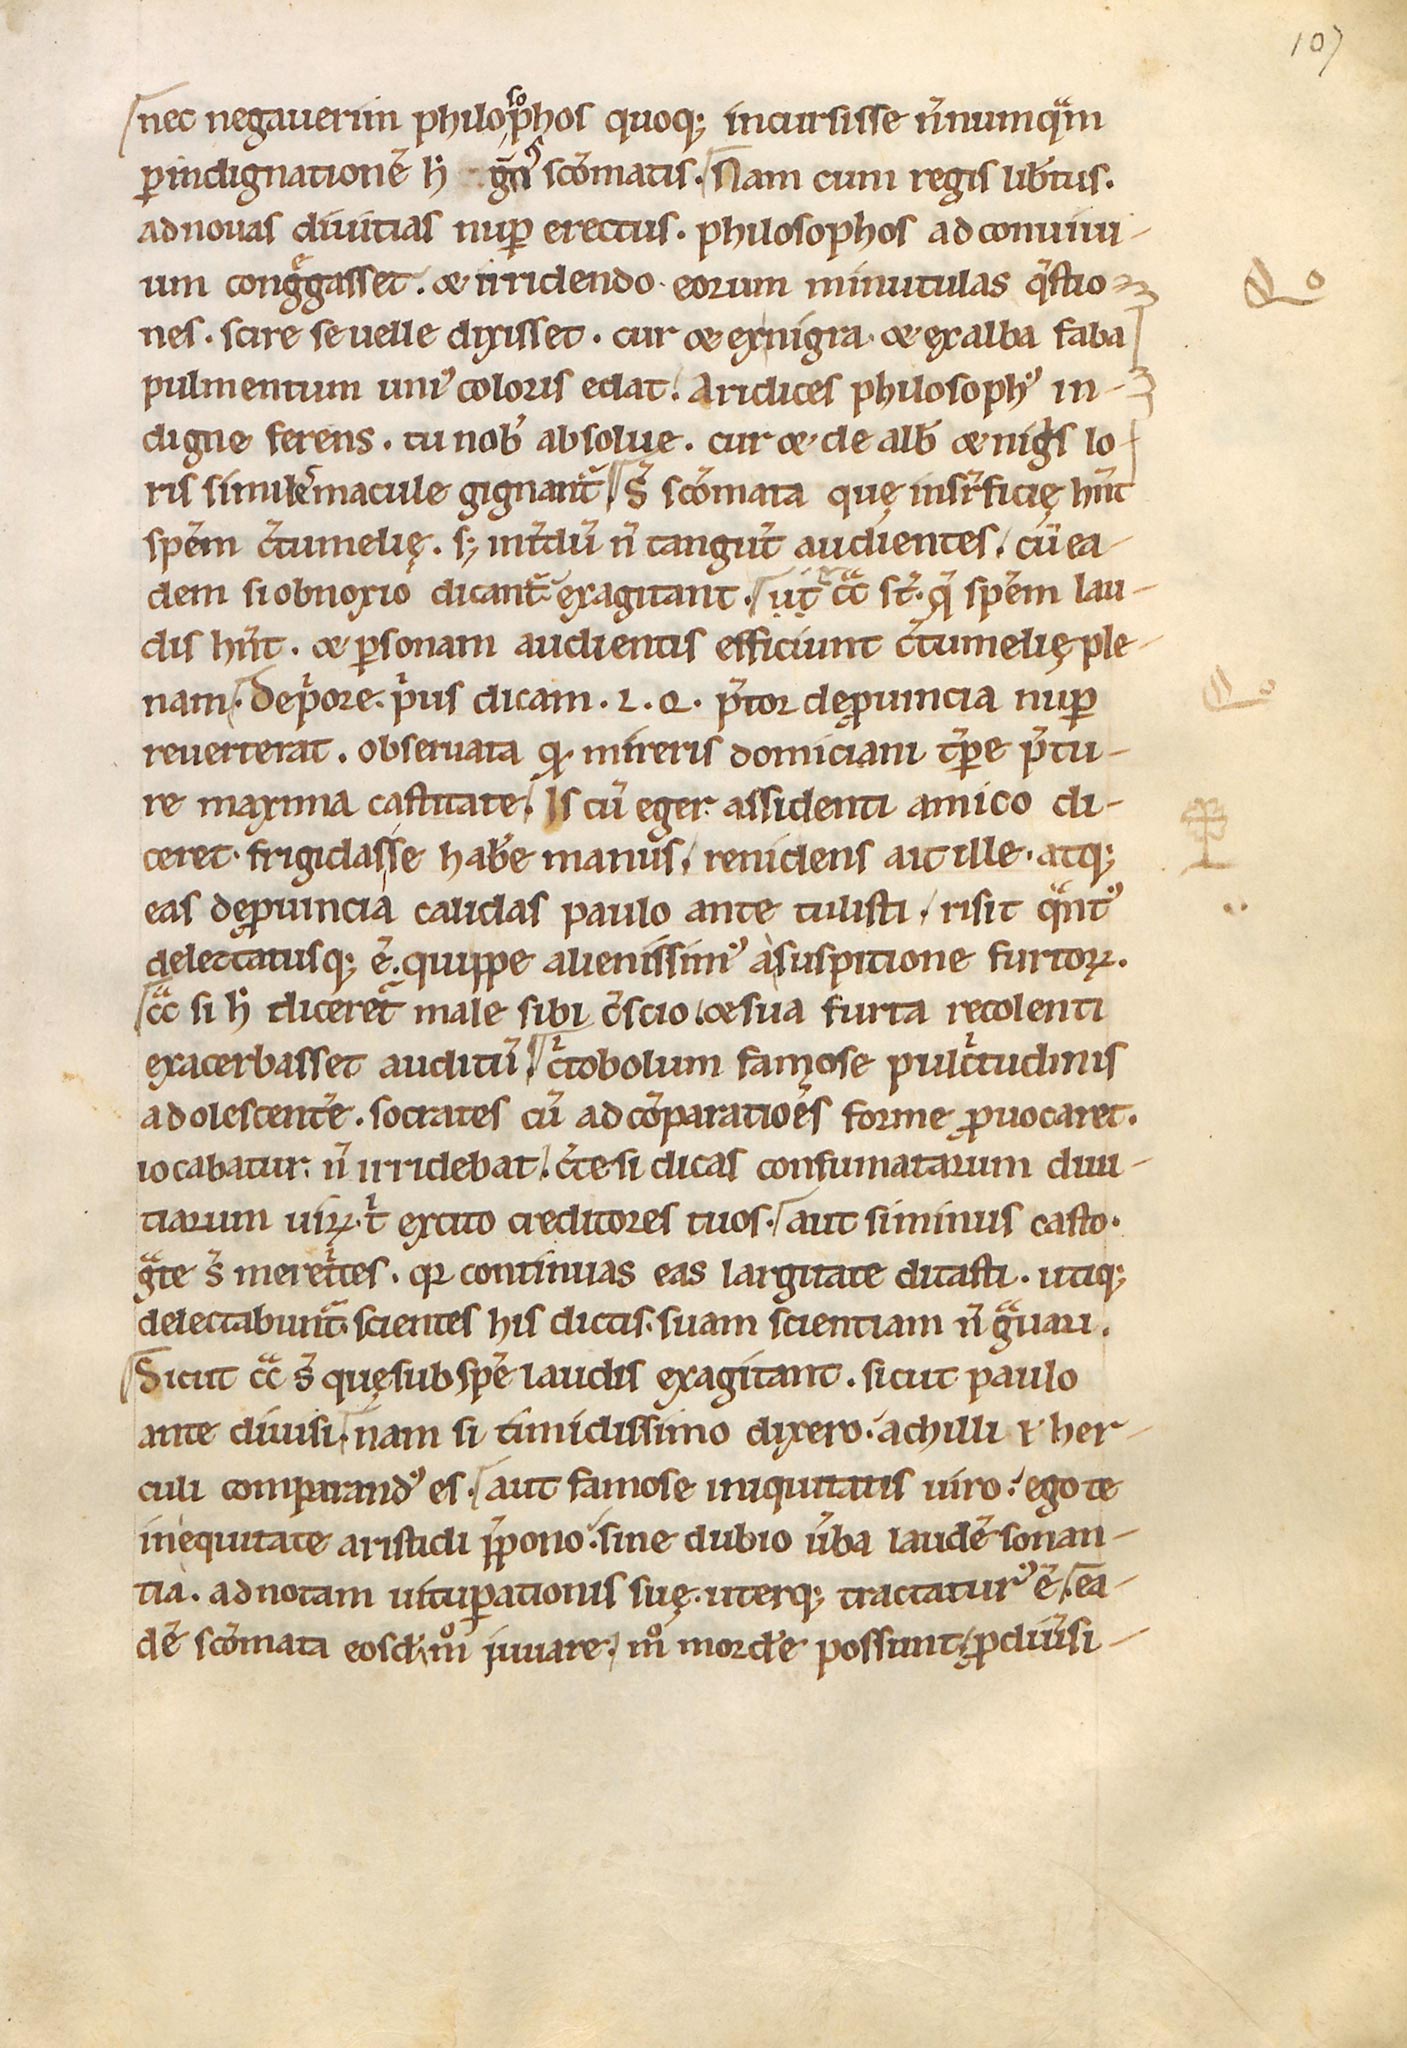 107
nec negauerim philosophos quoq; incursisse n̄numqᵃm
ꝑindignationē h̄ gn̄ˢ scōmatis. Nam cum regis libt̄us.
ad nouas diuitias nuꝑ erectus. philosophos ad conuiui-
um congᵉgasset. & irridendo eorum minutulas q̄stio
nes. scire se uelle dixisset. cur & exnigra & exalba faba
pulmentum uniꝰ coloris edat. Aridices philosophꝰ in-
digne ferens. tu nob̄ absolue. cur & de alb̄ & nigⁱs lo-
ris similēmacule gignant᷑. S̄ scōmata quę insr̄ficię hn̄t
spēm c̄tumelię. s; int̄dū n̄ tangūt audientes. cū ea-
dem si obnoxio dicant᷑ exagitant. ut ꝯᵃ st̄. q̄ spēm lau-
dis hn̄t. & ꝑsonam audientis efficiunt c̄tumelię ple-
nam. De pⁱore pⁱus dicam. L. Q. p̄tor deꝓuincia nuꝑ
reuerterat. obseruata qđ mireris domiciani tꝑe p̄tu-
re maxima castitate. Is cū eger assidenti amico di-
ceret. frigidasse hab̄e manus. renidens ait ille. atq;
eas deꝓuincia calidas paulo ante tulisti. risit qᵃntꝰ
delectatusq; ē. quippe alienissimꝰ a suspitione furtoꝝ.
ꝯᵃ si h̄ diceret᷑ male sibi c̄scio. & sua furta recolenti
exacerbasset auditū. cⁱtobolum famose pulcⁱtudinis
adolescentē. socrates cū ad cōparatioēs forme ꝓuocaret.
iocabatur. n̄ irridebat. c̄te si dicas confumatarum diui-
tiarum uiꝝ. tⁱ excito creditores tuos. aut si minus casto.
gᵃte s̄ meretⁱces. qꝛ continuas eas largitate ditasti. utiq;
delectabunt᷑ scientes his dictis. suam scientiam n̄ gᵃuari.
Sicut ꝯᵃ s̄ quęsub spē laudis exagitant. sicut paulo
ante diuisi. nam si timidissimo dixero. achilli & her-
culi comparandꝰ es. aut famose iniquitatis uiro. ego te
inequitate aristidi p̄pono. sine dubio ūba laudē sonan-
tia. ad notam uituꝑationis suę. uterq; tractaturꝰ ē. ea-
dē scōmata eosđ. mº iuuare. mº mord̄e possunt ꝓ diūsi-